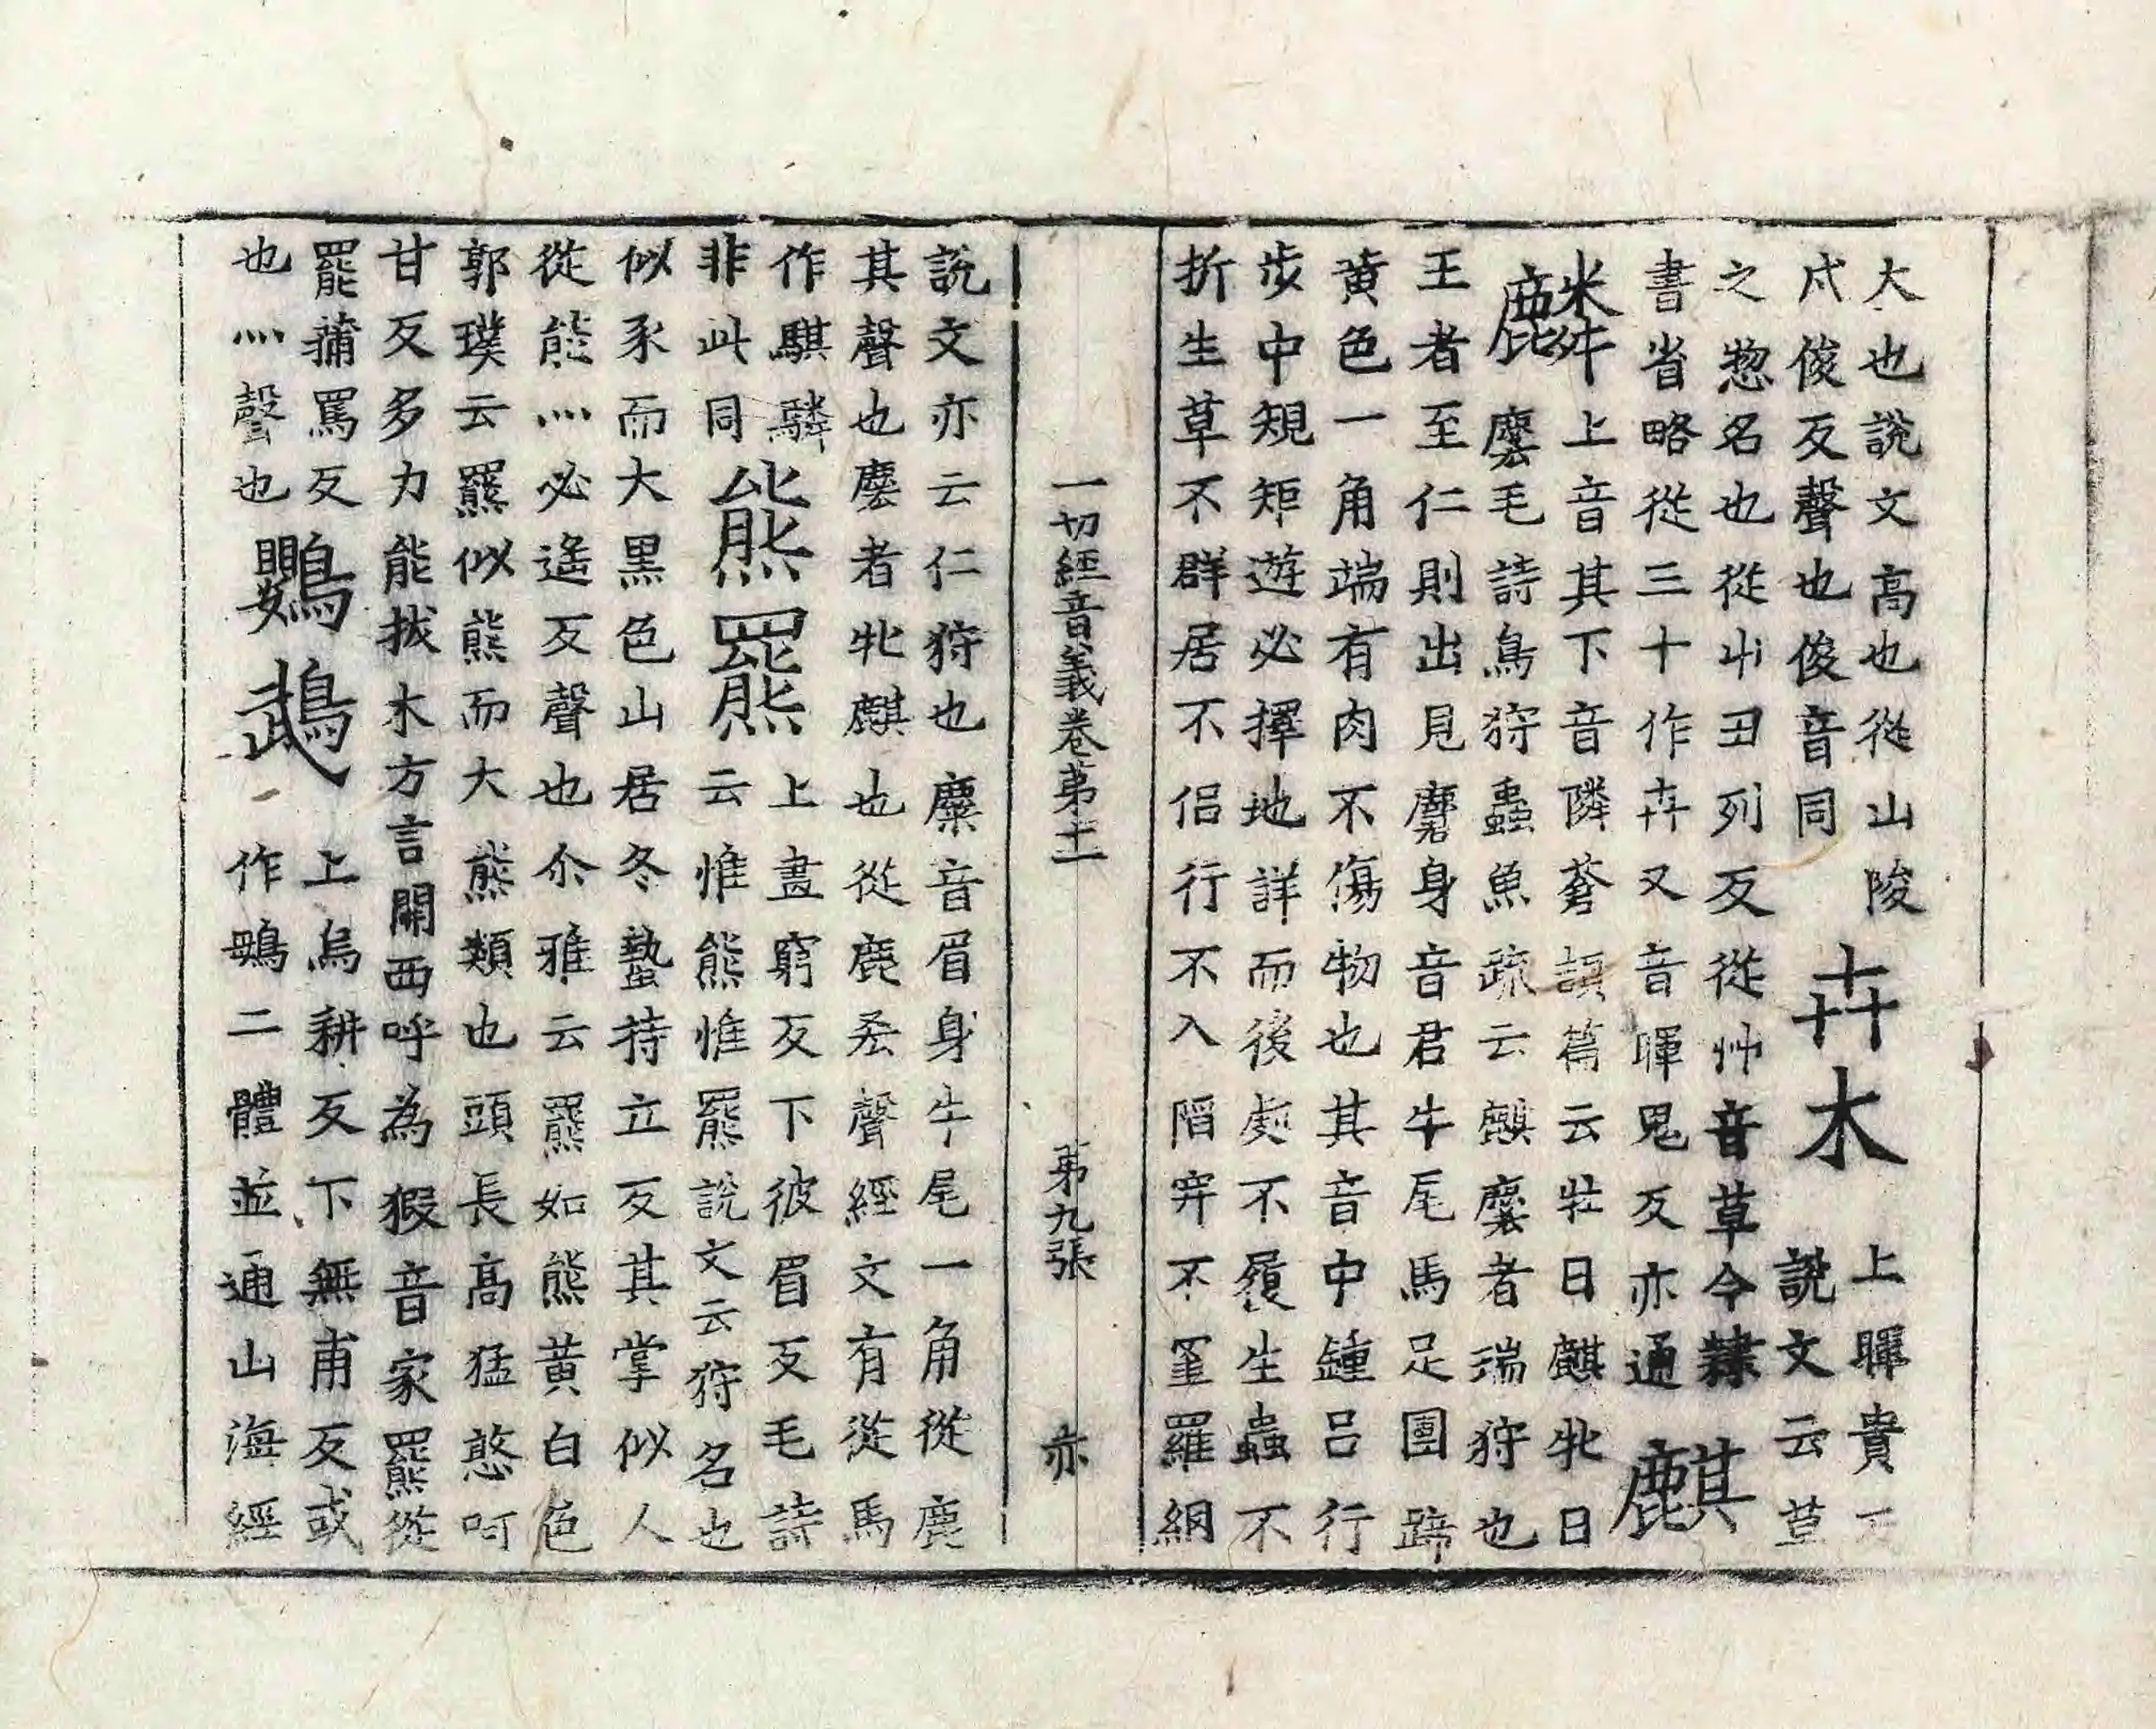 大也說文高也從山陵
戍俊反聲也俊音同
卉木
上暉貴下
說文云草
之惣名也從屮丑列反從艸音草今隸
書省略從三十作卉又音暉鬼反亦通
麒
麟上音其下音隣蒼頡篇云牡曰麒牝曰
麐毛詩鳥狩蟲魚疏云麒麐者瑞狩也
王者至仁則出見麏身音君牛尾馬足團蹄
黃色一角端有肉不傷物也其音中鍾呂行
步中規矩遊必擇地詳而後處不履生蟲不
折生草不群居不侶行不入陷穽不罣羅網
一切經音義卷第十一 第九張 亦
說文亦云仁狩也麋音眉身牛尾一角從鹿
其聲也麐者牝麒也從鹿吝聲經文有從馬
作騏驎
非此同
熊羆
上畫窮反下彼眉反毛詩
云惟熊惟羆說文云狩名也
似豕而大黑色山居冬蟄持立反其掌似人
從能灬必遙反聲也尒雅云羆如熊黃白色
郭璞云羆似熊而大熊類也頭長高猛憨呵
甘反多力能拔木方言關西呼為猳音家羆從
罷蒲罵反
也灬聲也
鸚䳇
上烏耕反下無甫反或
作鴞二體並通山海經